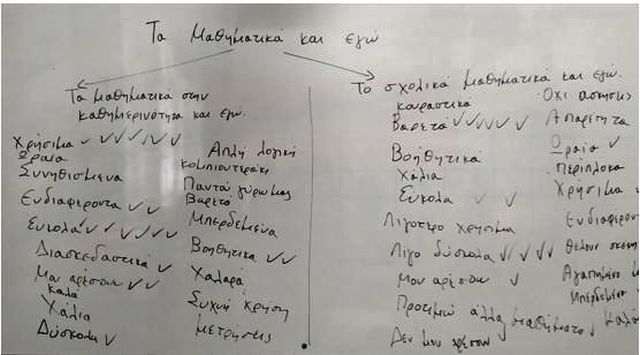 Τα Μαθηματικά και εγώ
Τα μαθηματικά στην
καθημερινότητα και εγώ.
Χρήσιμα ✓ ✓ ✓ ✓ ✓ ✓
Ωραία
Συνηθισμένα
Ενδιαφέροντα ✓ ✓
Ευκολα ✓ ✓ ✓ ✓ ✓ ✓
Διασκεδαστικά ✓
Μου αρέσουν ✓ ✓
καλά
Χάλια
Δύσκολα ✓
Απλή λογική
κομπιουτεράκι
Παντού γύρω μας
Βαρετά
Μπερδεμένα
Βοηθητικά ✓ ✓
Χαλαρά
Συχνή χρήση
μετρήσεις
Το σχολικά μαθηματικά και εγώ.
κουραστικά
Βαρετά ✓ ✓ ✓ ✓ ✓
Βοηθητικά
Χάλια
Ευκολα ✓ ✓
Λιγότερο χρήσιμα
Λίγο δύσκολα ✓ ✓ ✓ ✓
Μου αρέσουν ✓
Προτιμώ άλλα μαθήματα ✓
Δεν μου αρέσουν
Όχι ασκήσεις
Απαραίτητα
Ωραία ✓
Περίπλοκα
Χρήσιμα
Ενδιαφέρον
Θέλουν
Αγαπημένο
Μπερδεμένα
Καλά